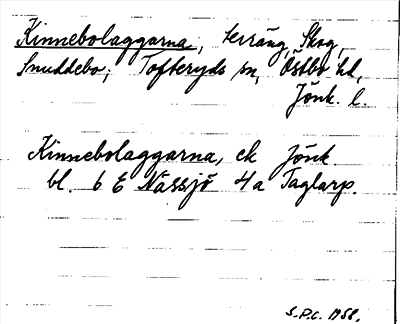 Kinnebolaggarna, terräng, Skog,
Snuddebo; Tofteryds sn, Östbo hd,
Jönk. l.
Kinnebolaggarna, ek Jönk.
bl. 6 E Nässjö 4a Taglarp.
S.P.C. 1958.